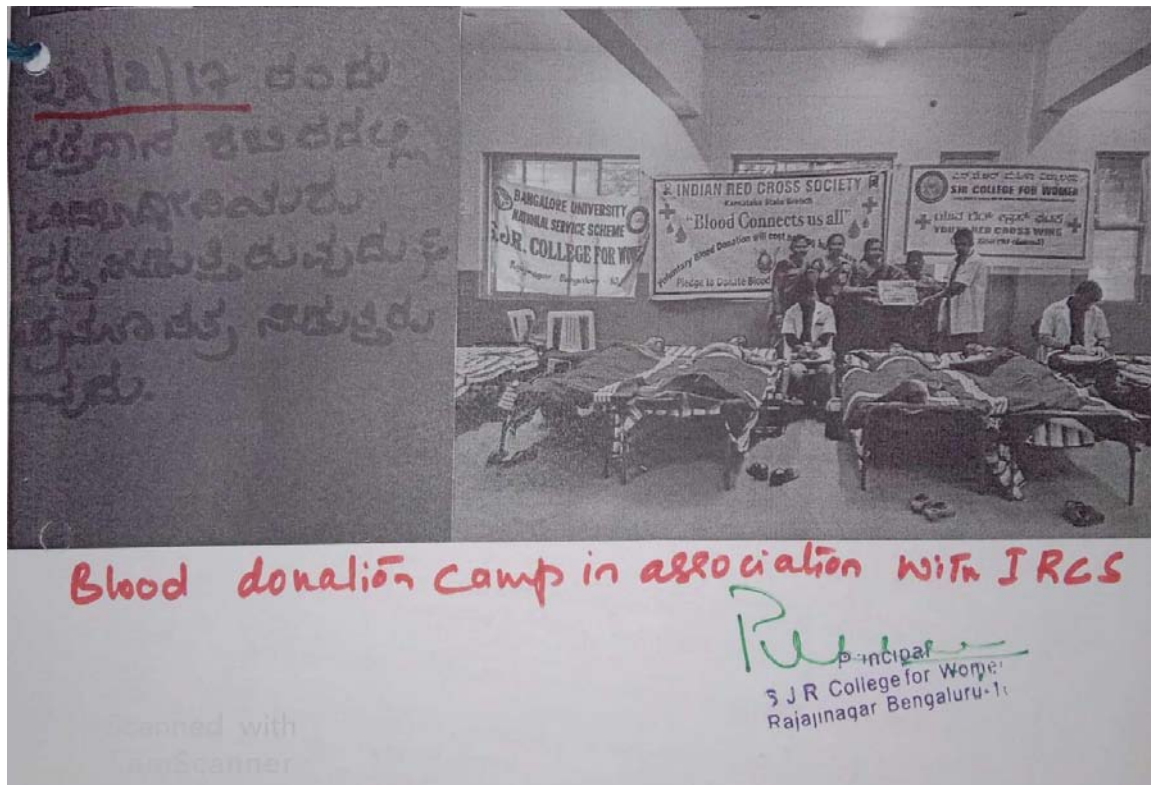 22/2/17 ರಂದು
ರಕ್ತದಾನ ಶಿಬಿರದಲ್ಲಿ
ವಿದ್ಯಾರ್ಥಿನಿಯರು
ರಕ್ತ ನೀಡುತ್ತಿರುವುದು
ರಕ್ತ ನೀಡುತ್ತಿರು
BANGALORE UNIVERSITY
NATIONAL SERVICE SCHEME
S.J.R. COLLEGE FOR WOM
Rajajinagar Bangalore
INDIAN RED CROSS SOCIETY
Karnataka State Branch
"Blood Connects us all"
Voluntary Blood Donation will cost
Pledge to Donate Blood
ಎಸ್.ಜೆ.ಆರ್ ಮಹಿಳಾ ವಿದ್ಯಾಲಯ
SJR COLLEGE FOR WOMEN
ಯುವ ರೆಡ್ ಕ್ರಾಸ್ ಘಟಕ
YOUTH RED CROSS WING
Blood donation camp in association with IRCS
Principal
S J R College for Women
Rajajinagar Bengaluru-1
Scanned with
CamScanner